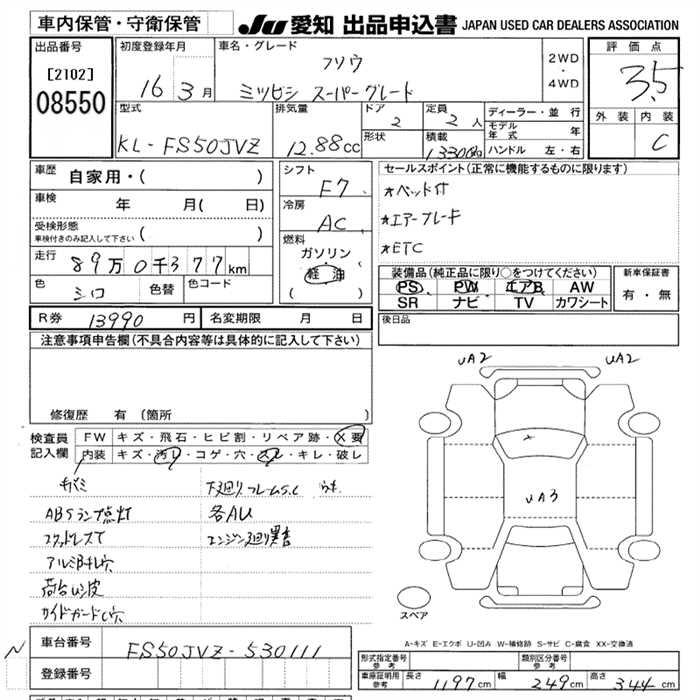 車内保管・守衛保管
JU 愛知 出品申込書 JAPAN USED CAR DEALERS ASSOCIATION
出品番号
[2102]
08550
初度登録年月
16 3 月
車名・グレード
フソウ
ミツビシ スーパーグレード
2WD
・
4WD
評価点
3.5
外装 内装
C
型式
KL-FS50JVZ
排気量
12.88cc
ドア
2
形状
定員
2人
積載
13300kg
ディーラー・並行
モデル年式 年
ハンドル 左・右
車歴 自家用・( )
車検 年 月( 日)
受検形態
車検付きのみ記入して下さい ( )
走行 89万0千377km
色 シロ 色替 色コード
シフト
F7
冷房
AC
燃料
ガソリン
軽油
( )
セールスポイント(正常に機能するものに限り)
*ベッド付
*エアーブレーキ
*ETC
装備品(純正品に限り○をつけてください)
PS PW エアB AW
SR ナビ TV カワシート
新車保証書
有・無
R券 13990 円 名変期限 月 日
後日品
注意事項申告欄(不具合内容等は具体的に記入して下さい)
修復歴 有(箇所 )
検査員記入欄
FW キズ・飛石・ヒビ割・リペア跡・X要
内装 キズ・汚レ・コゲ・穴・スレ・キレ・破レ
キバミ
下廻りフレームS.C
ABSランプ点灯
各AU
スタッドレスT
エンジン廻り異音
アルミB キレ穴
荷台
サイドガード
UA2
UA2
UA3
スペア
A-キズ E-エクボ U-凹み W-補修跡 S-サビ C-腐食 XX-交換済
N
車台番号 FS50JVZ-530111
登録番号
形式指定番号参考
類別区分番号参考
車庫証明用参考 長さ 1197cm 幅 249cm 高さ 344cm